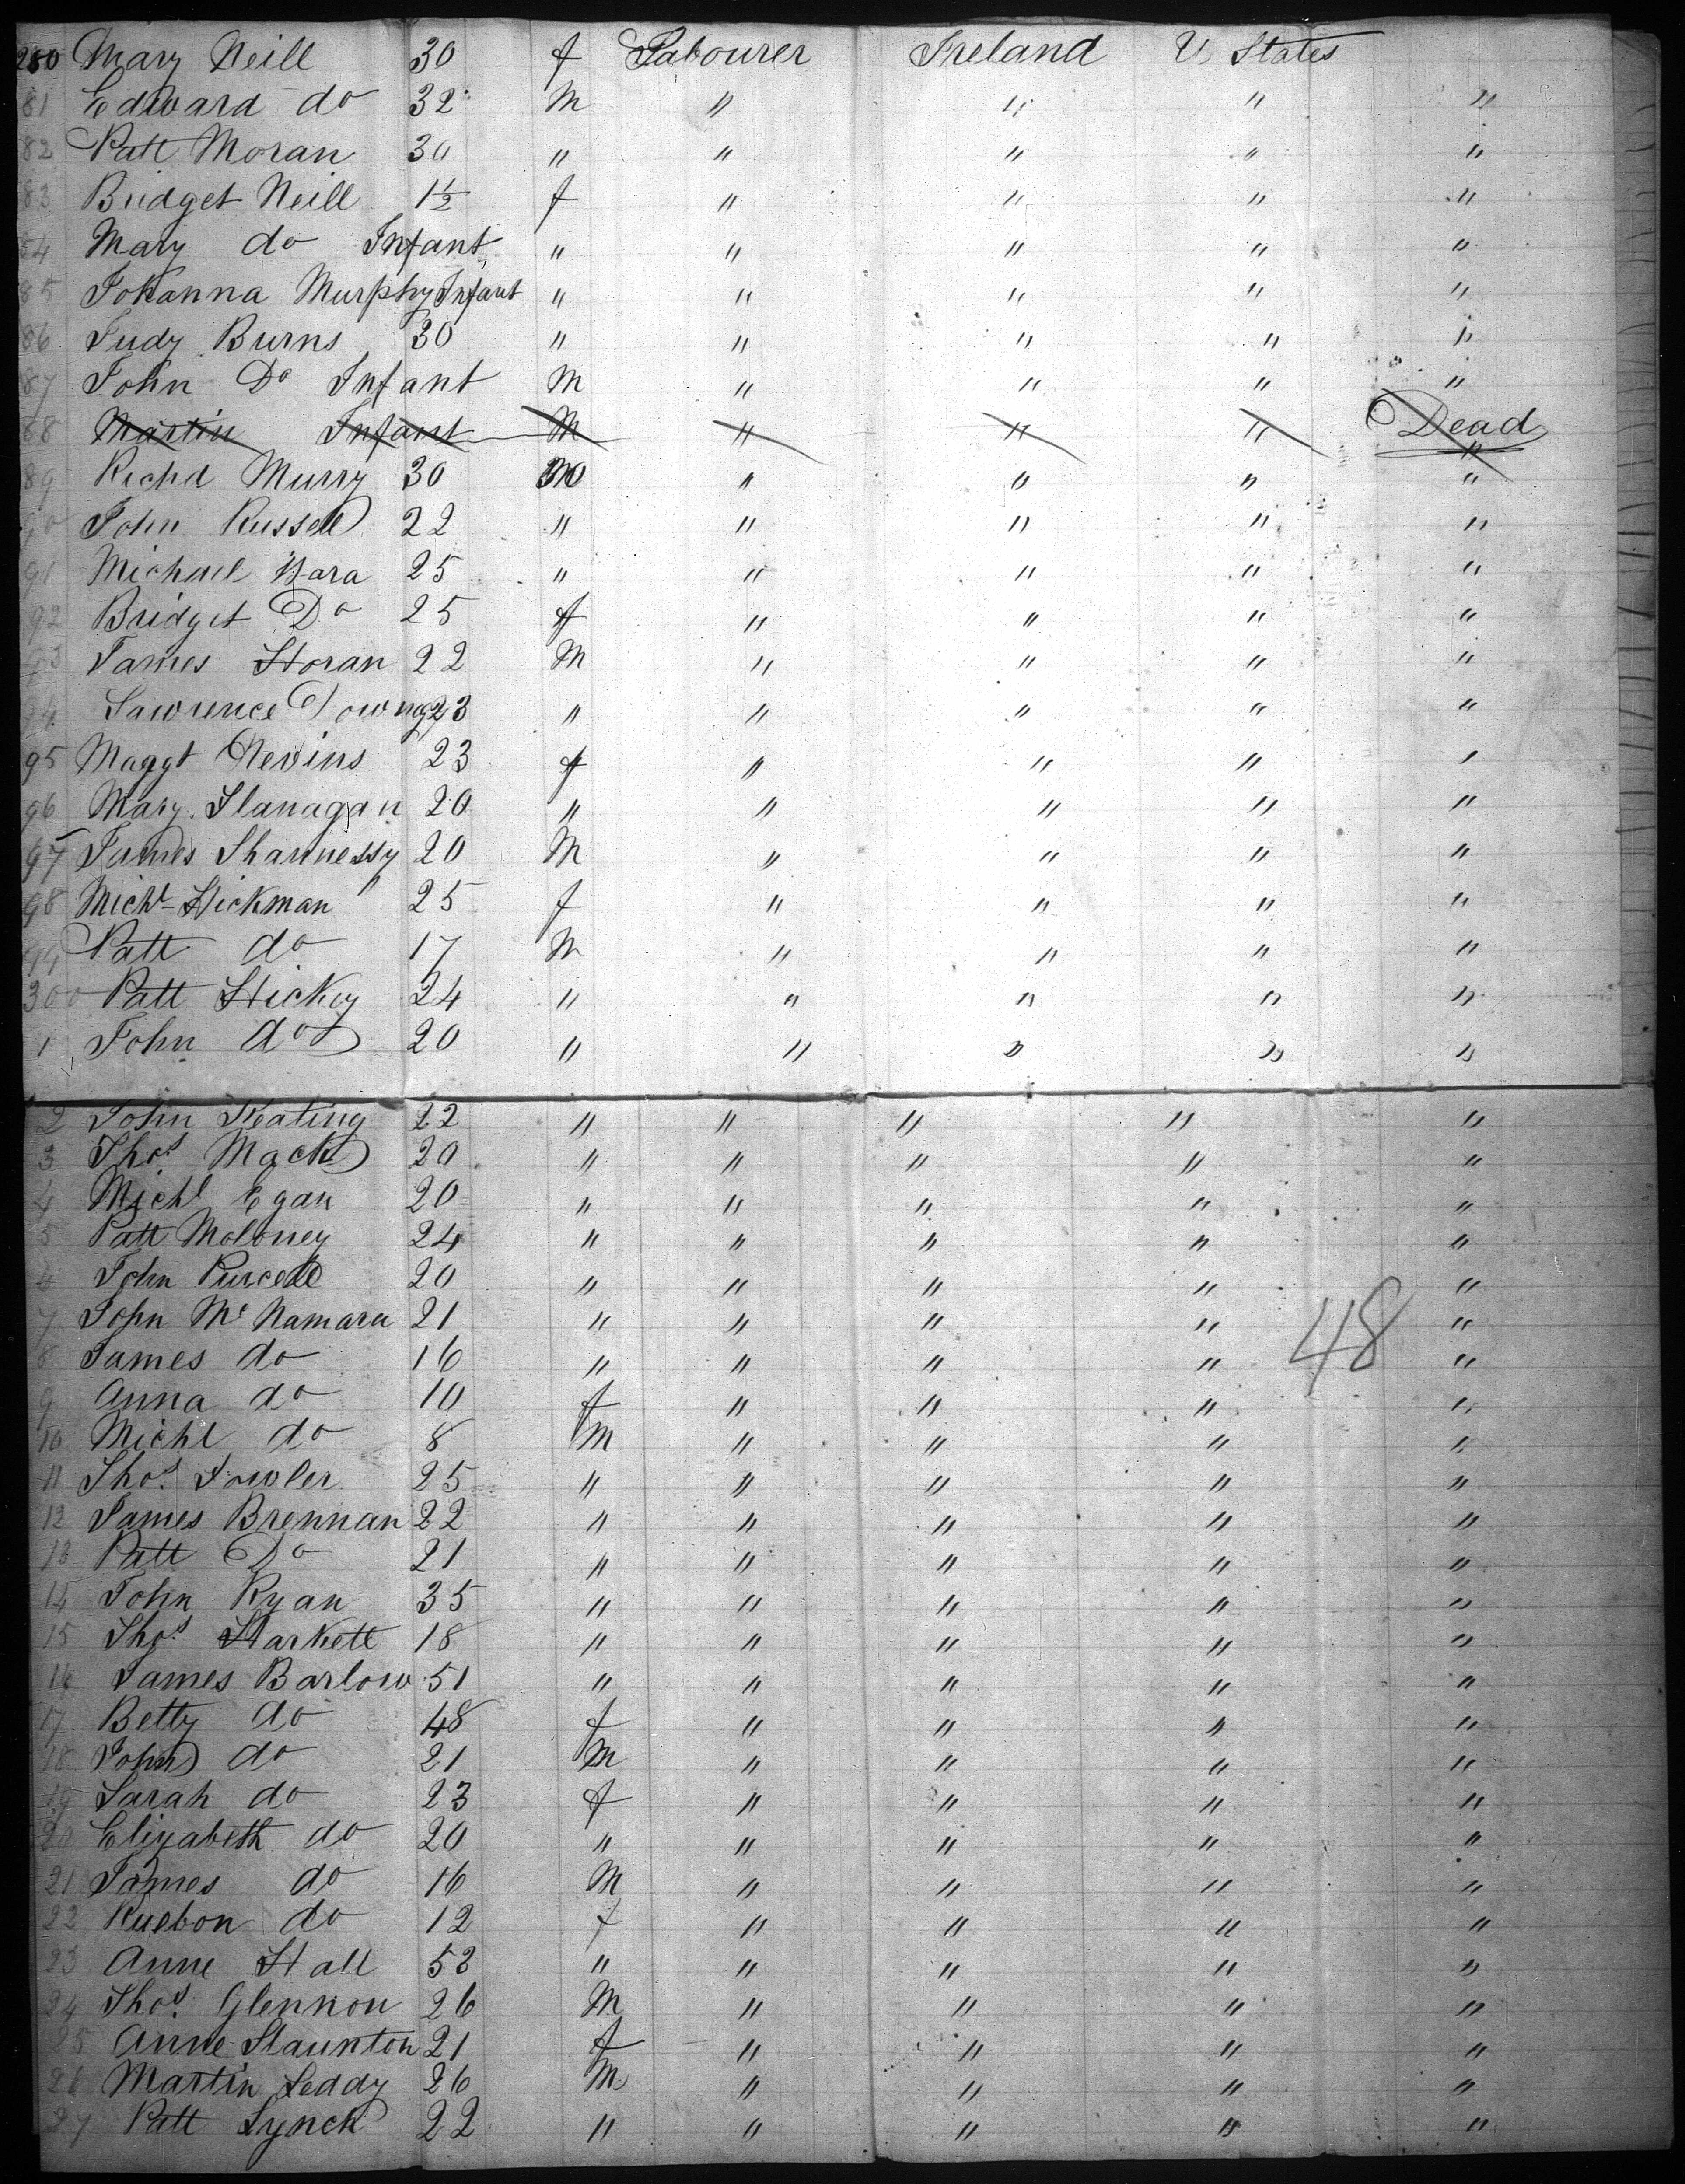 280 Mary Neill 30 f Labourer Ireland U, States
81 Edward do 32 M " " " "
82 Patt Moran 30 " " " " "
83 Bridget Neill 1½ f " " " "
84 Mary do Infant " " " " "
85 Johanna Murphy Infant " " " " "
86 Judy Burns 30 " " " " "
87 John Do Infant M " " " "
88 Martin Infant M " " " Dead
89 Richd Murry 30 M " " " "
90 John Russell 22 " " " " "
91 Michael Hara 25 " " " " "
92 Bridget Do 25 f " " " "
93 James Horan 22 M " " " "
94 Lawrence 23 " " " " "
95 Maggt Nevins 23 f " " " "
96 Mary Flanagan 20 " " " " "
97 James Shannessy 20 M " " " "
98 Michl Hickman 25 f " " " "
99 Patt do 17 M " " " "
300 Patt Hickey 24 " " " " "
1 John do 20 " " " " "
2 John Keating 22 " " " " "
3 Thos Mack 20 " " " " "
4 Michl Egan 20 " " " " "
5 Patt Moloney 24 " " " " "
6 John Purcell 20 " " " " "
7 John Mc Namara 21 " " " " "
8 James do 16 " " " " 48 "
9 Anna do 10 f " " " "
10 Michl do 8 M " " " "
11 Thos Fowler 25 " " " " "
12 James Brennan 22 " " " " "
13 Patt Do 21 " " " " "
14 John Ryan 35 " " " " "
15 Thos Harkett 18 " " " " "
16 James Barlow 51 " " " " "
17 Betty do 48 f " " " "
18 John do 21 M " " " "
19 Sarah do 23 f " " " "
20 Elizabeth do 20 " " " " "
21 James do 16 M " " " "
22 Ruebon do 12 f " " " "
23 Anne Hall 52 " " " " "
24 Thos Glennon 26 M " " " "
25 Anne Staunton 21 f " " " "
26 Martin Leddy 26 M " " " "
27 Patt Lynch 22 " " " " "